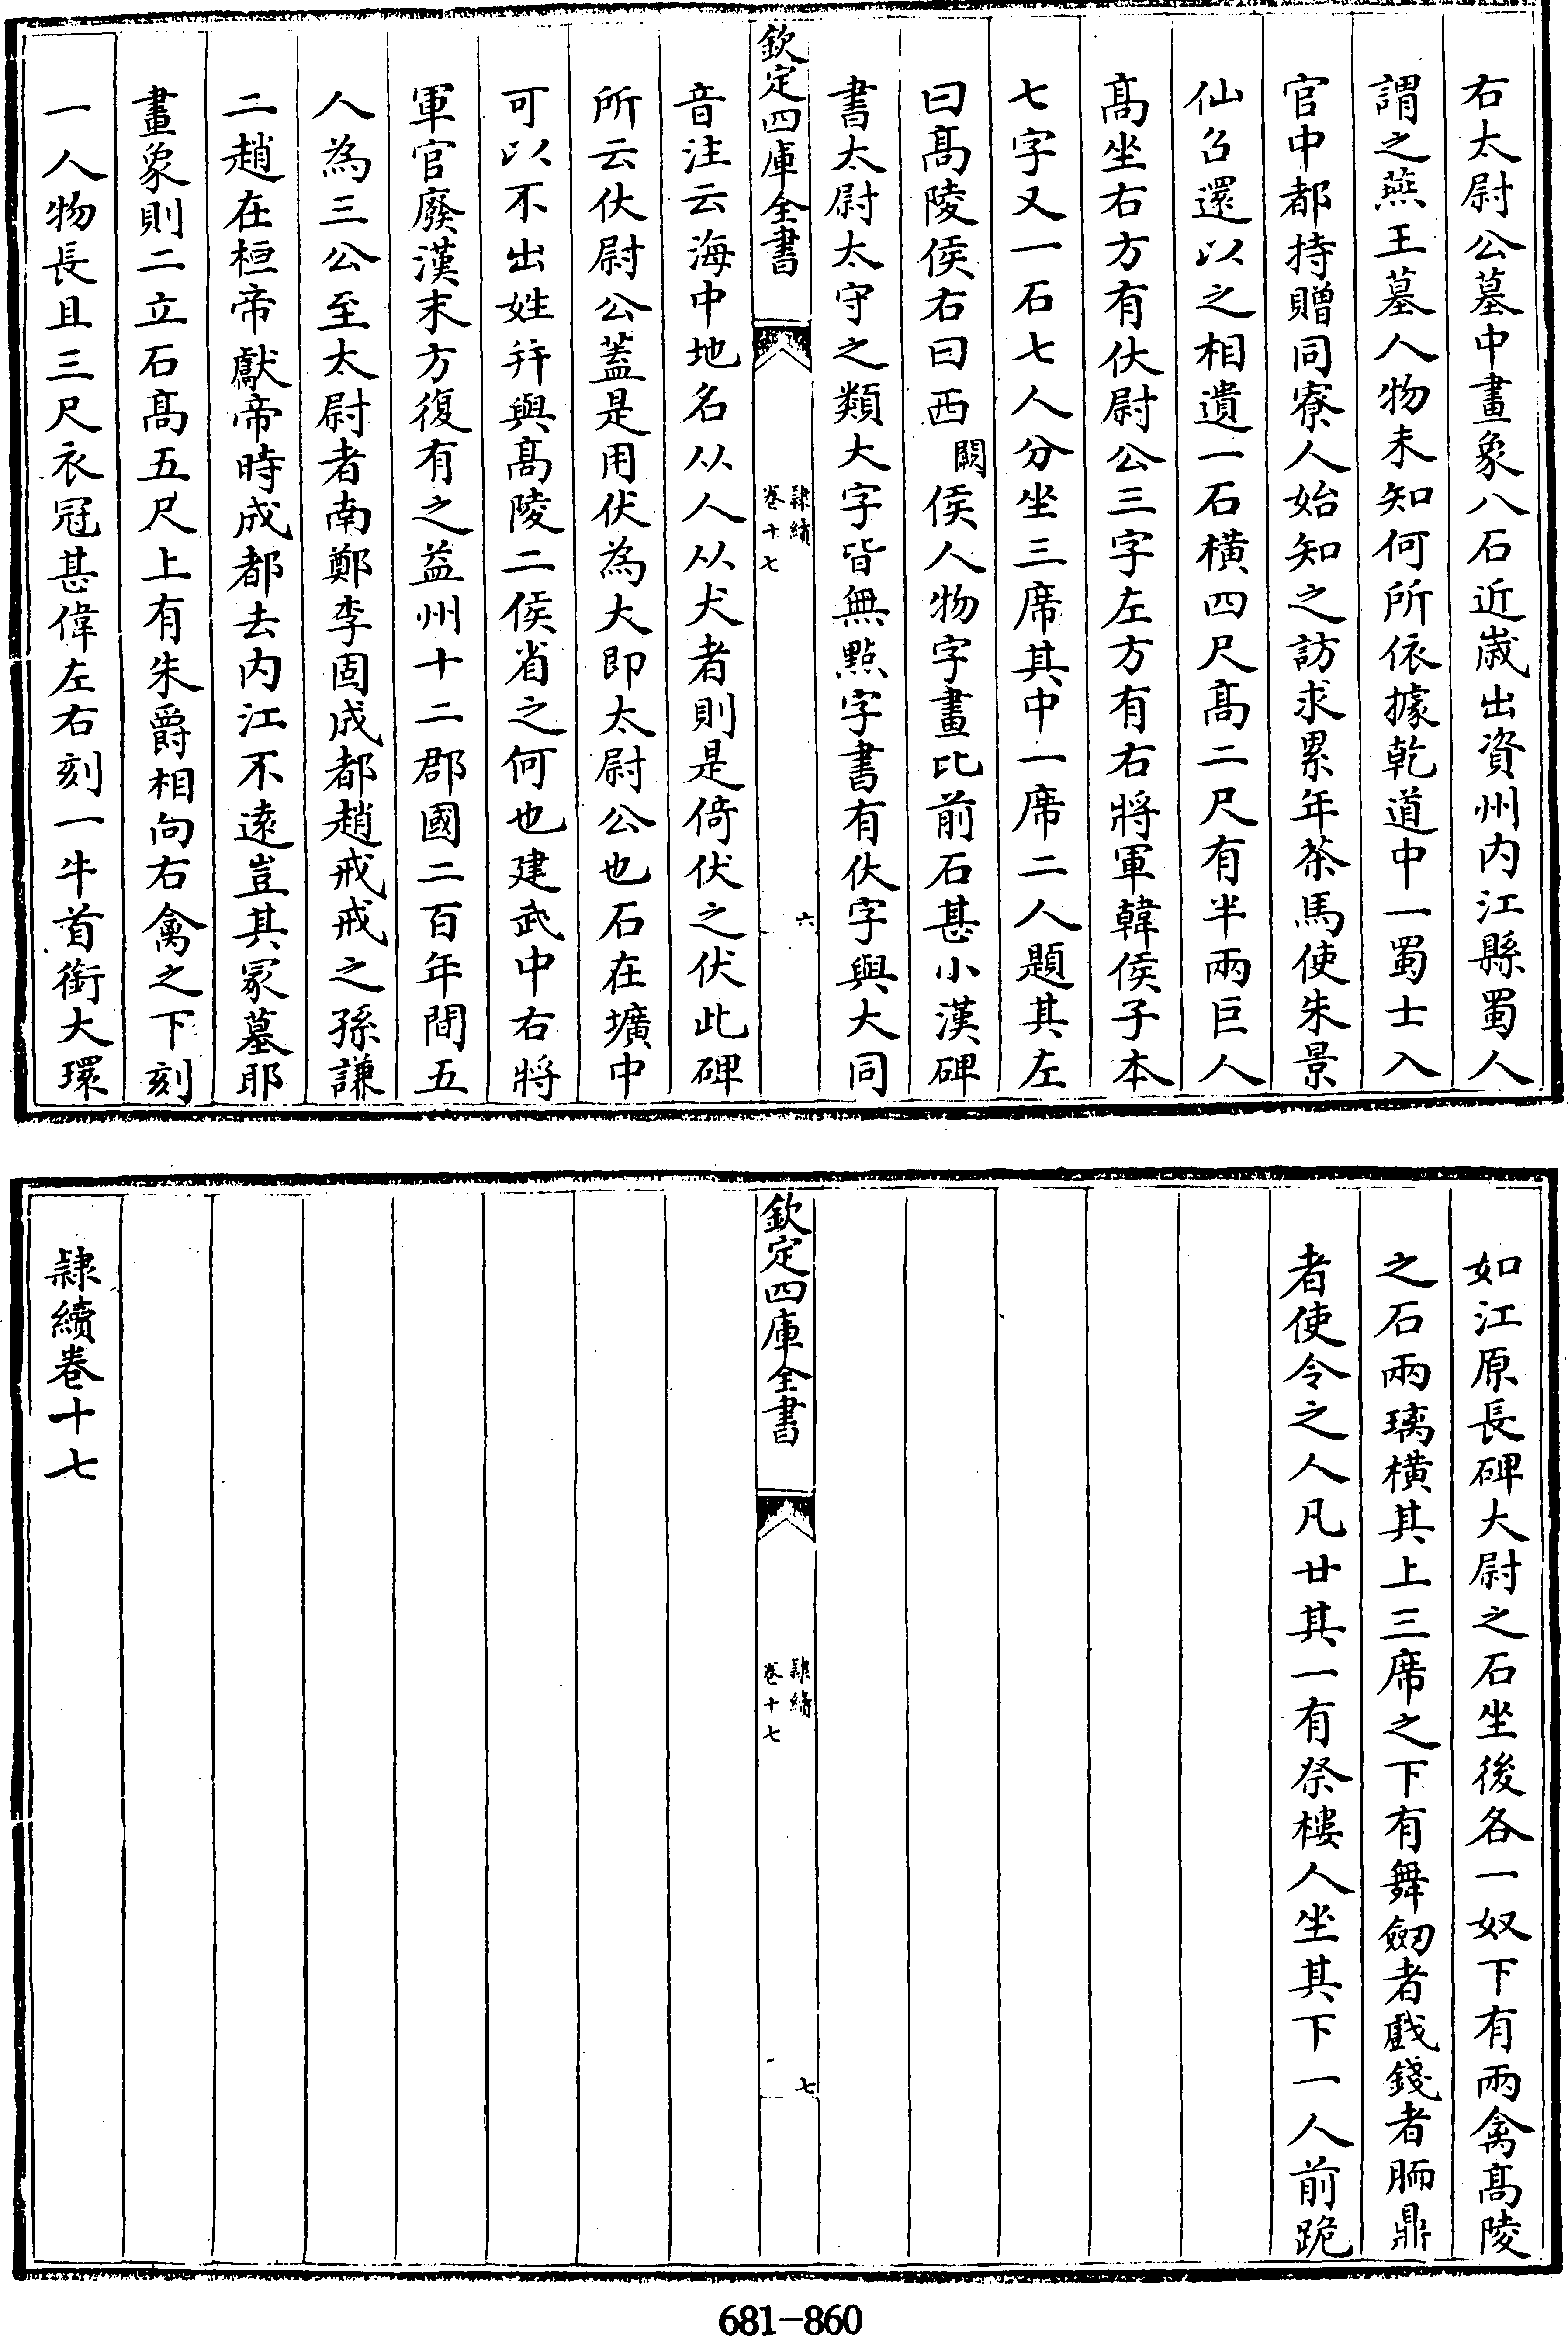 右太尉公墓中畫象八石近歲出資州内江縣蜀人
謂之燕王墓人物未知何所依據乾道中一蜀士入
官中都持贈同寮人始知之訪求累年茶馬使朱景
仙召還以之相遺一石橫四尺髙二尺有半兩巨人
髙坐右方有伏尉公三字左方有右將軍韓侯子本
七字又一石七人分坐三席其中一席二人題其左
曰髙陵侯右曰西闕侯人物字畫比前石甚小漢碑
書太尉太守之類大字皆無點字書有伏字與大同
欽定四庫全書
隷續
卷十七
六
音注云海中地名从人从犬者則是倚伏之伏此碑
所云伏尉公蓋是用伏為大即太尉公也石在壙中
可以不出姓并與髙陵二侯省之何也建武中右將
軍官廢漢末方復有之益州十二郡國二百年間五
人為三公至太尉者南鄭李固成都趙戒戒之孫謙
二趙在桓帝獻帝時成都去内江不遠豈其冢墓耶
畫象則二立石髙五尺上有朱爵相向右禽之下刻
一人物長且三尺衣冠甚偉左右刻一牛首銜大環
如江原長碑大尉之石坐後各一奴下有兩禽髙陵
之石兩璃橫其上三席之下有舞劒者戲錢者胹鼎
者使令之人凡廿其一有祭樓人坐其下一人前跪
欽定四庫全書
隷續
卷十七
七
隷續卷十七
681-860